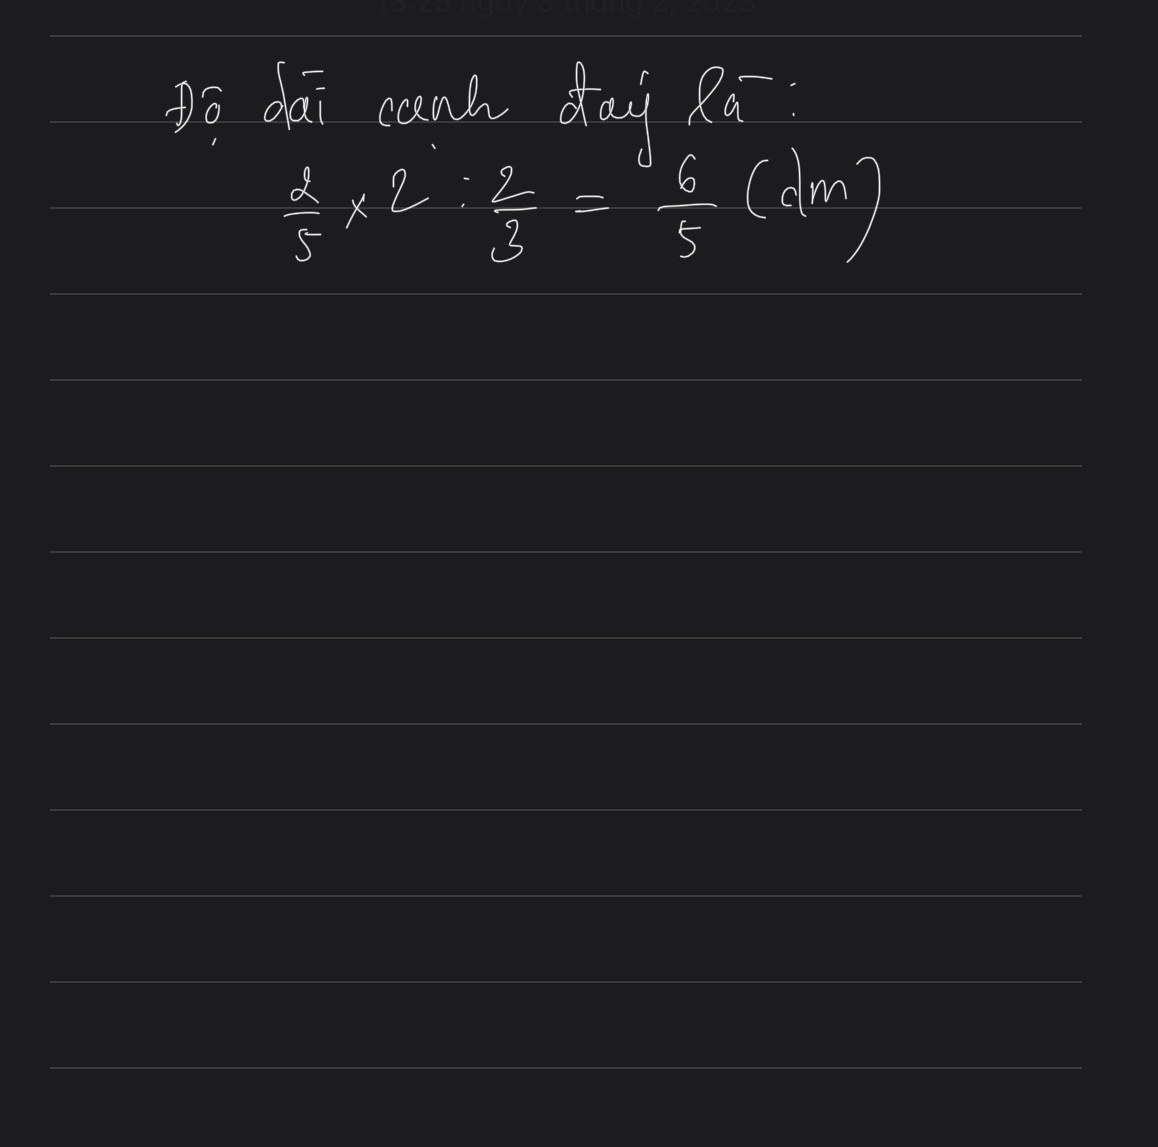 18:25 ngày 3 tháng 2, 2023
Độ dài cạnh đáy là:
2/5 × 2 : 2/3 = 6/5 (dm)